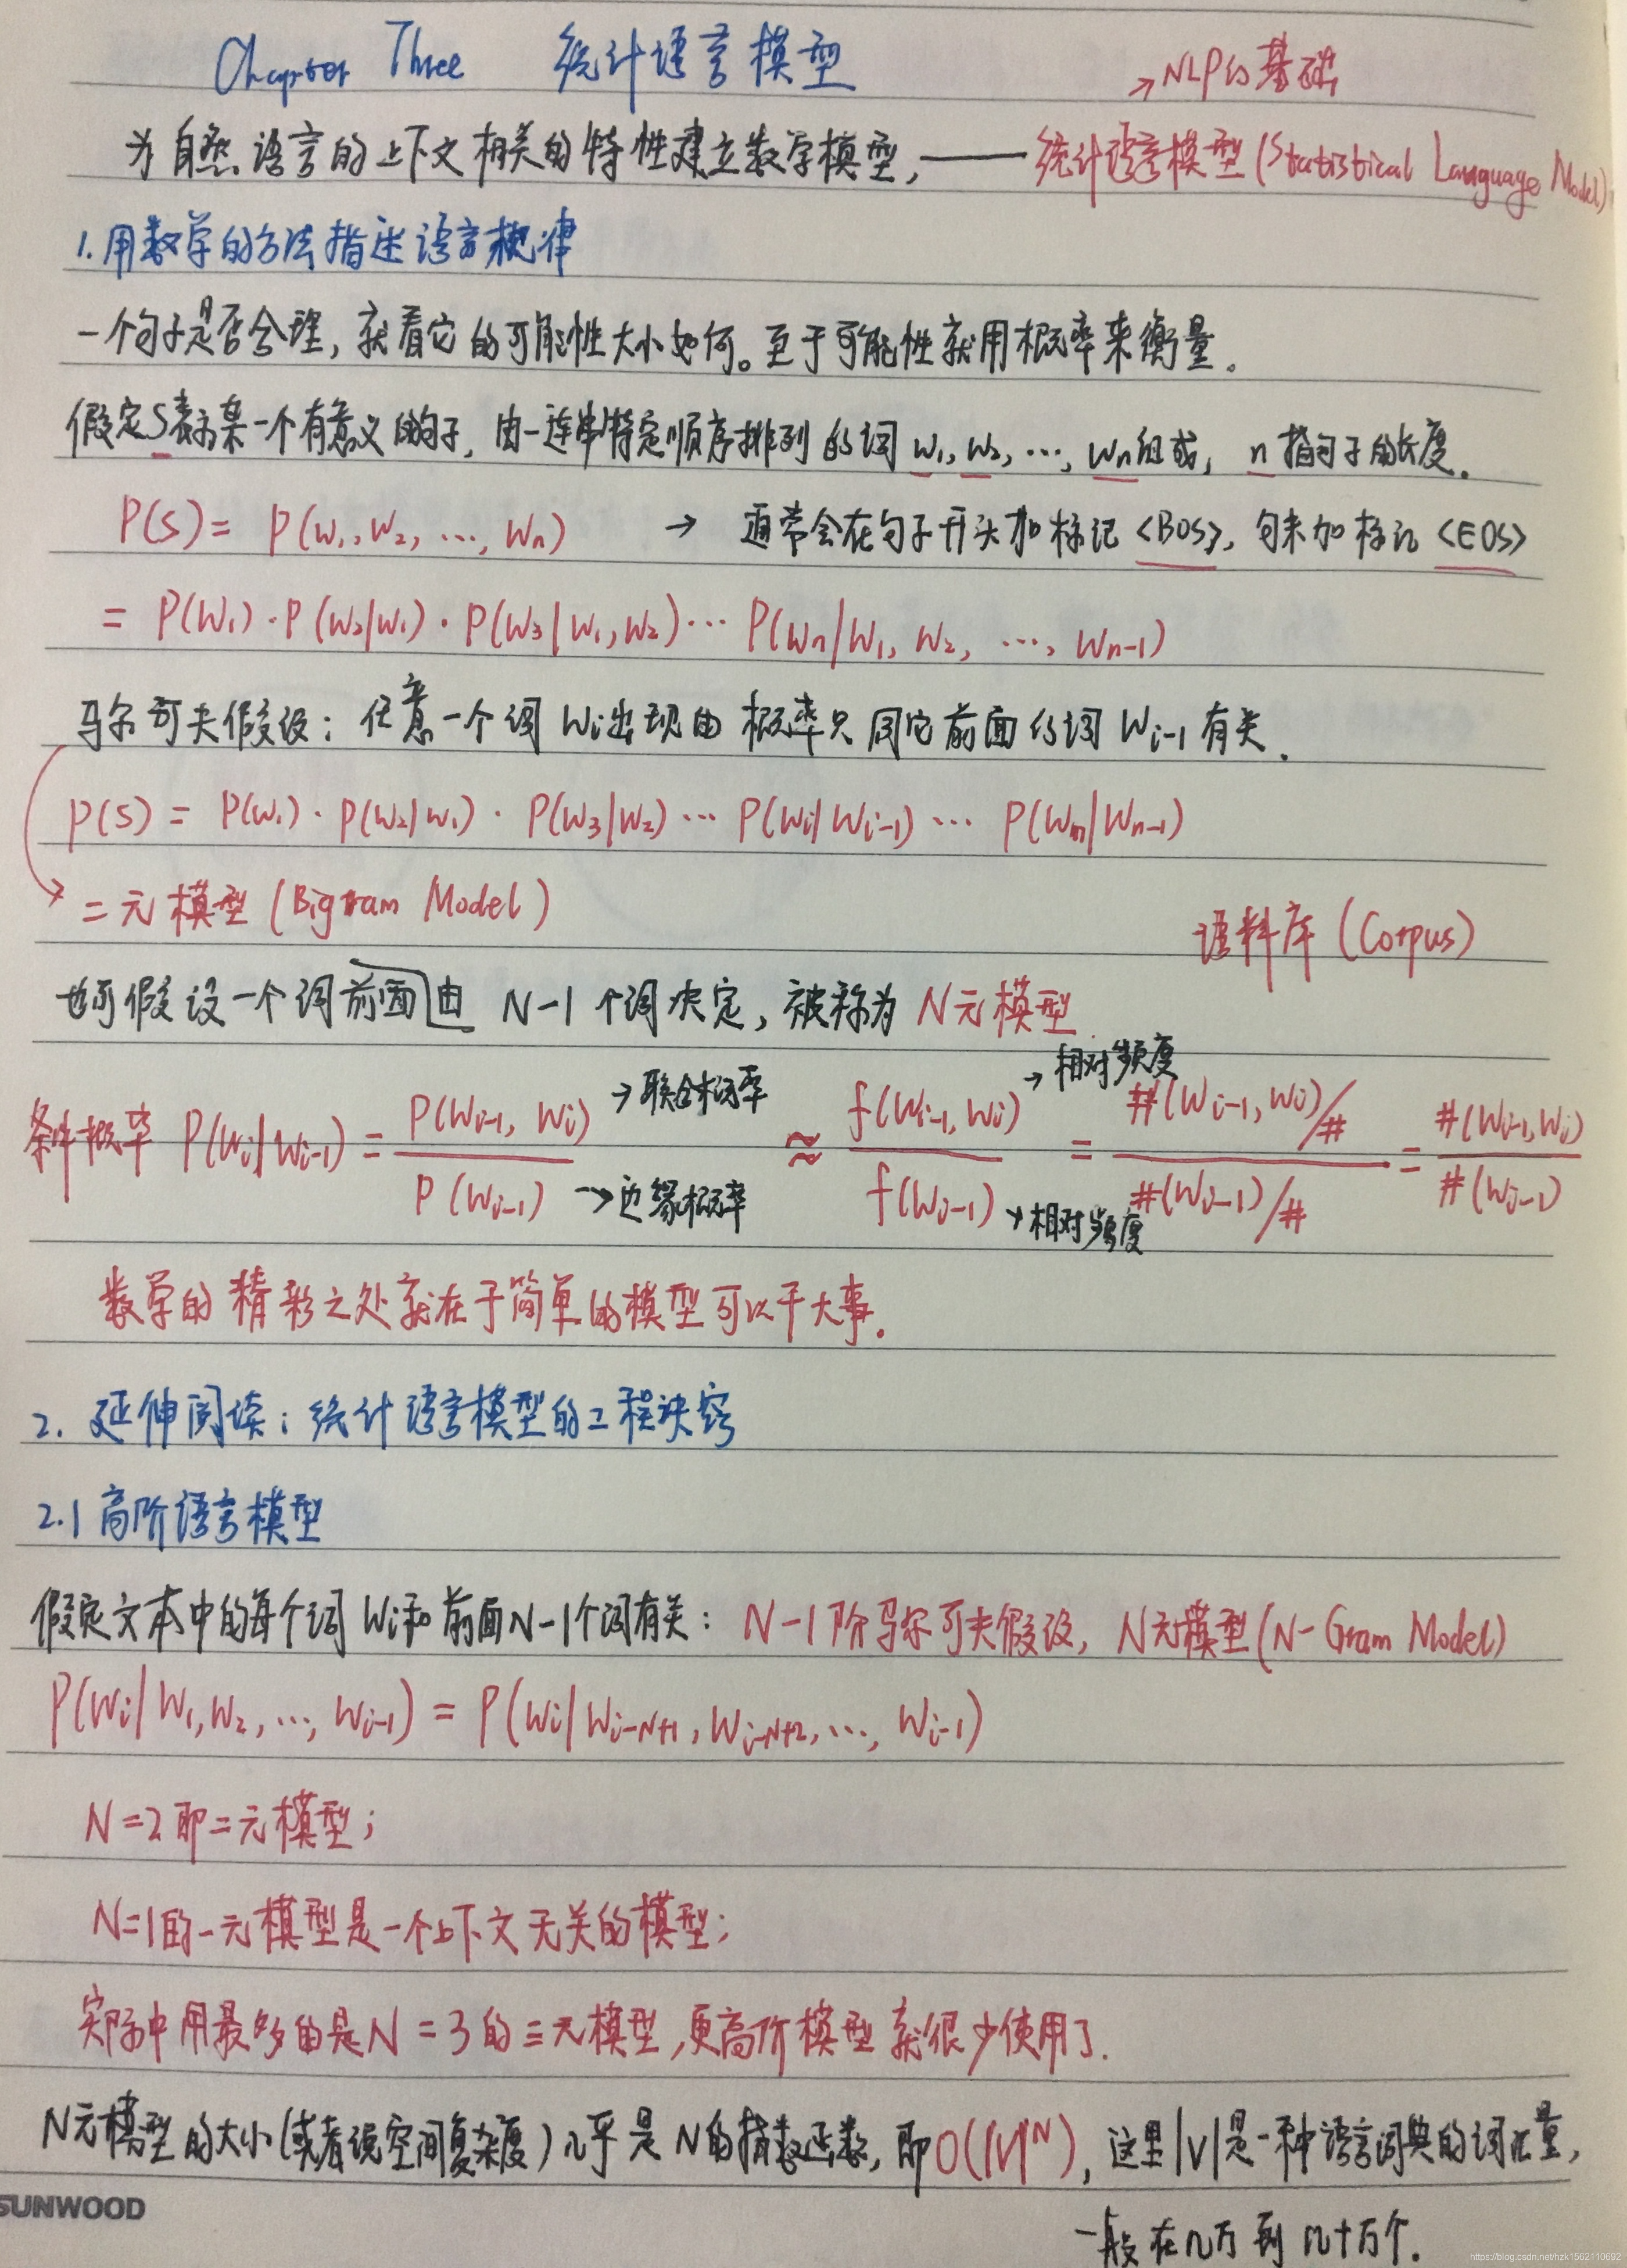 Chapter Three 统计语言模型
→NLP的基础
为自然语言的上下文相关的特性建立数学模型，——统计语言模型(Statistical Language Model)
1.用数学的方法描述语言规律
一个句子是否合理，就看它的可能性大小如何。至于可能性就用概率来衡量.
假定S表示某一个有意义的句子，由一连串特定顺序排列的词w₁,w₂,…,wn组成，n指句子的长度.
P(S)= P(w₁,w₂,…,wn) → 通常会在句子开头加标记<BOS>，句末加标记<EOS>
= P(w₁)·P(w₂|w₁)·P(w₃|w₁,w₂)… P(wn|w₁,w₂,…,wn-1)
马尔可夫假设：任意一个词wi出现的概率只同它前面的词wi-1有关.
P(S)= P(w₁)·P(w₂|w₁)·P(w₃|w₂)… P(wi|wi-1)… P(wn|wn-1)
二元模型(Bigram Model)
语料库(Corpus)
也可假设一个词前面由N-1个词决定，被称为N元模型.
条件概率 P(wi|wi-1)= P(wi-1,wi)→联合概率 / P(wi-1)→边缘概率 ≈ f(wi-1,wi)→相对频度 / f(wi-1)→相对频度 = #(wi-1,wi)/# / #(wi-1)/# = #(wi-1,wi) / #(wi-1)
数学的精彩之处就在于简单的模型可以干大事.
2. 延伸阅读：统计语言模型的工程诀窍
2.1 高阶语言模型
假定文本中的每个词wi和前面N-1个词有关：N-1阶马尔可夫假设，N元模型(N-Gram Model)
P(wi|w₁,w₂,…,wi-1)= P(wi|wi-N+1,wi-N+2,…,wi-1)
N=2即二元模型；
N=1的一元模型是一个上下文无关的模型；
实际中用最多的是N=3的三元模型，更高阶模型就很少使用了.
N元模型的大小(或者说空间复杂度)几乎是N的指数函数，即O(|V|ᴺ)，这里|V|是一种语言词典的词汇量，
一般在几万到几十万个.
SUNWOOD
https://blog.csdn.net/hzk1562110692